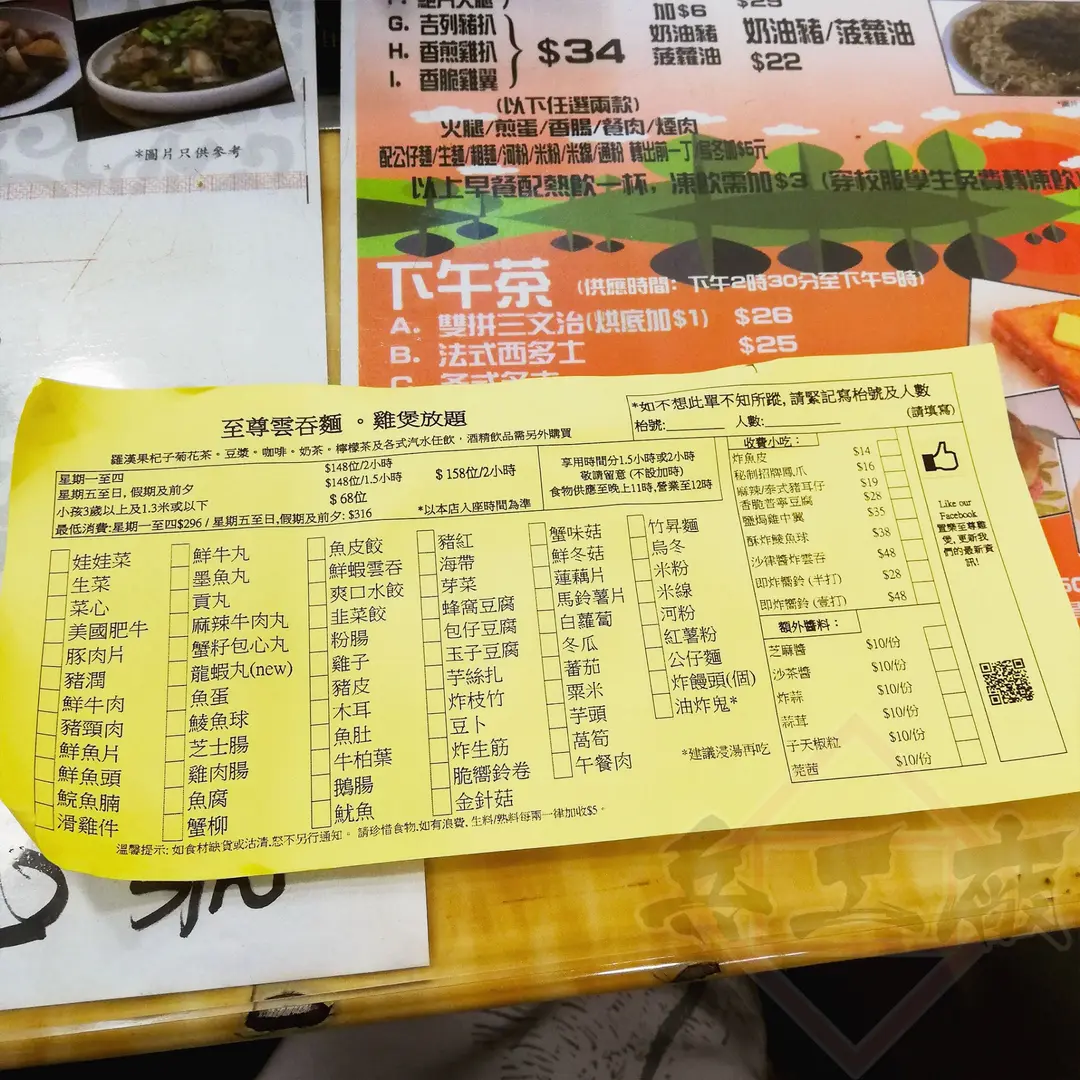 *圖片只供參考
G. 吉列豬扒
H. 香煎雞扒
I. 香脆雞翼
$34
加$6
奶油豬
菠蘿油
奶油豬/菠蘿油
$22
(以下任選兩款)
火腿/煎蛋/香腸/餐肉/煙肉
配公仔麵/生麵/粗麵/河粉/米粉/米線/通粉 轉出前一丁/烏冬加$5元
以上早餐配熱飲一杯，凍飲需加$3 (穿校服學生免費轉凍飲
下午茶 (供應時間：下午2時30分至下午5時)
A. 雙拼三文治(烘底加$1) $26
B. 法式西多士 $25
至尊雲吞麵 。雞煲放題
羅漢果杞子菊花茶。豆漿。咖啡。奶茶。檸檬茶及各式汽水任飲，酒精飲品需另外購買
星期一至四 $148位/2小時
星期五至日, 假期及前夕 $148位/1.5小時 $ 158位/2小時
小孩3歲以上及1.3米或以下 $ 68位
最低消費:星期一至四$296 / 星期五至日,假期及前夕: $316
*以本店入座時間為準
享用時間分1.5小時或2小時
敬請留意 (不設加時)
食物供應至晚上11時,營業至12時
*如不想此單不知所蹤, 請緊記寫枱號及人數
枱號: 人數: (請填寫)
娃娃菜
生菜
菜心
美國肥牛
豚肉片
豬潤
鮮牛肉
豬頸肉
鮮魚片
鮮魚頭
鯇魚腩
滑雞件
鮮牛丸
墨魚丸
貢丸
麻辣牛肉丸
蟹籽包心丸
龍蝦丸(new)
魚蛋
鯪魚球
芝士腸
雞肉腸
魚腐
蟹柳
魚皮餃
鮮蝦雲吞
爽口水餃
韭菜餃
粉腸
雞子
豬皮
木耳
魚肚
牛柏葉
鵝腸
魷魚
豬紅
海帶
芽菜
蜂窩豆腐
包仔豆腐
玉子豆腐
芋絲扎
炸枝竹
豆卜
炸生筋
脆嚮鈴卷
金針菇
蟹味菇
鮮冬菇
蓮藕片
馬鈴薯片
白蘿蔔
冬瓜
蕃茄
粟米
芋頭
萵筍
午餐肉
竹昇麵
烏冬
米粉
米線
河粉
紅薯粉
公仔麵
炸饅頭(個)
油炸鬼*
*建議浸湯再吃
收費小吃：
炸魚皮 $14
秘制招牌鳳爪 $16
麻辣/泰式豬耳仔 $19
香脆普寧豆腐 $28
鹽焗雞中翼 $35
酥炸鯪魚球 $38
沙律醬炸雲吞 $48
即炸嚮鈴 (半打) $28
即炸嚮鈴 (壹打) $48
額外醬料：
芝麻醬 $10/份
沙茶醬 $10/份
炸蒜 $10/份
蒜茸 $10/份
子天椒粒 $10/份
莞茜 $10/份
Like our
Facebook
置樂至尊雞
煲, 更新我
們的最新資
訊!
溫馨提示: 如食材缺貨或沽清,恕不另行通知。 請珍惜食物,如有浪費, 生料/熟料每兩一律加收$5。
兵工廠